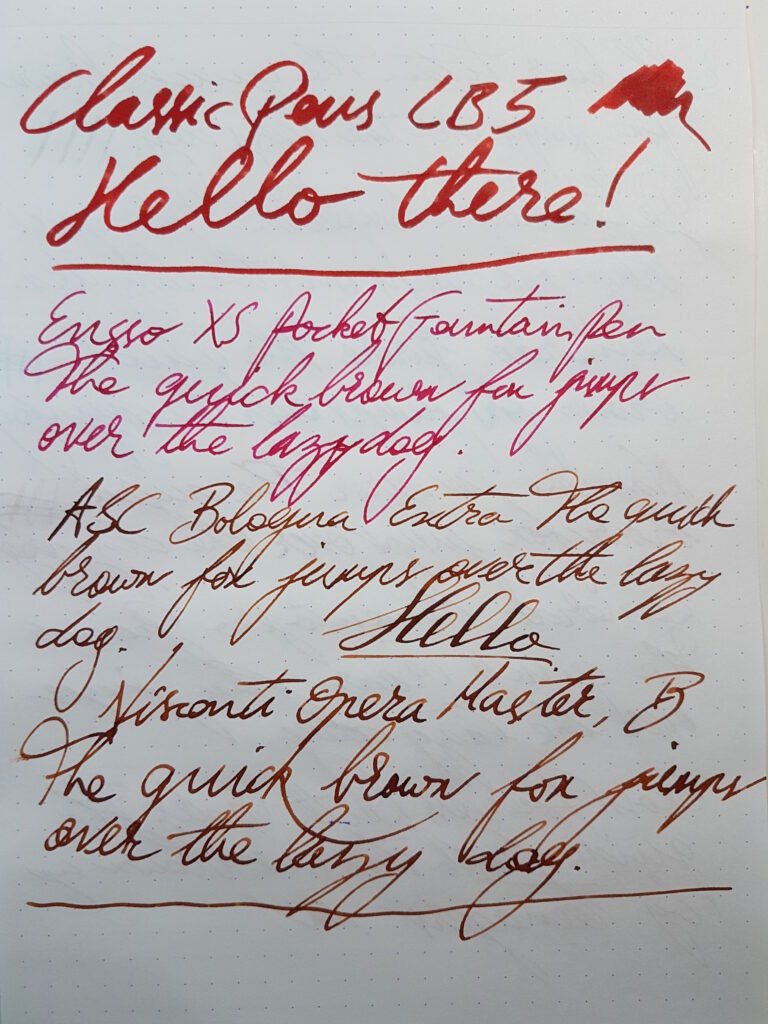 Classic Pens LB5
Hello there!
Ensso XS Pocket Fountain Pen
The quick brown fox jumps
over the lazy dog.
ASC Bologna Extra The quick
brown fox jumps over the lazy
dog. Hello
Visconti Opera Master, B
The quick brown fox jumps
over the lazy dog.